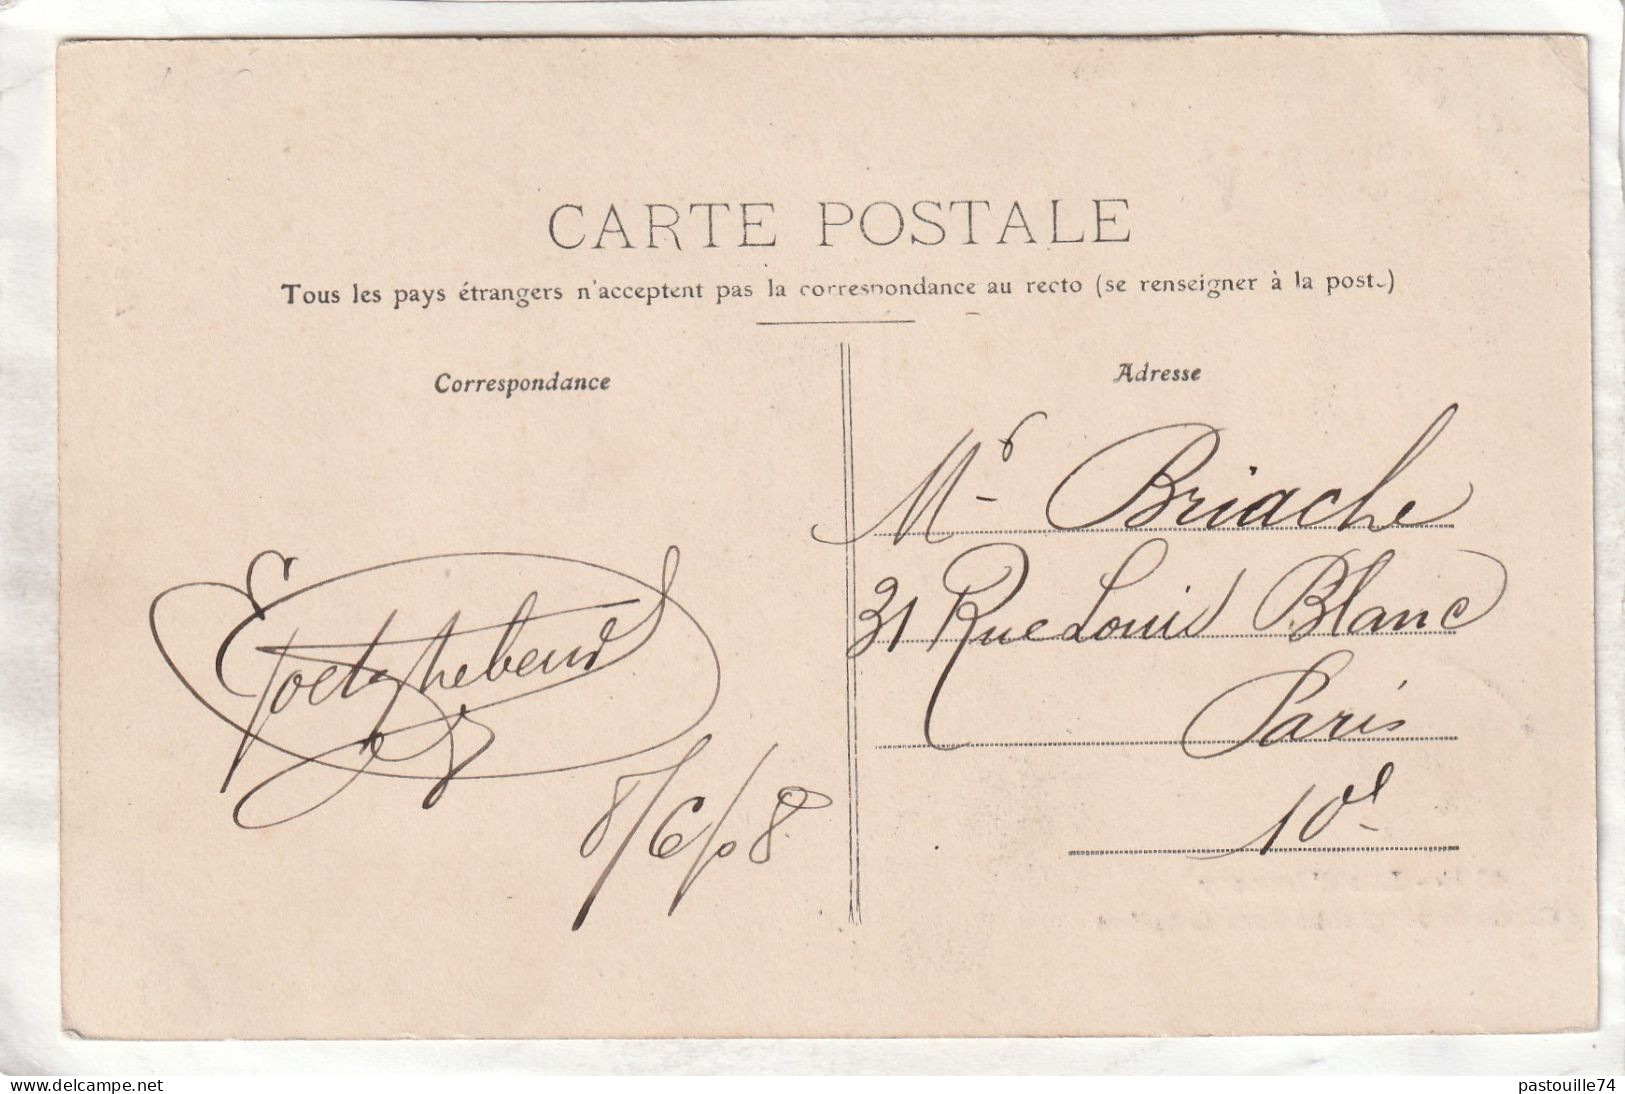 CARTE POSTALE
Tous les pays étrangers n'acceptent pas la correspondance au recto (se renseigner à la poste)
Correspondance
Adresse
Mr Briache
31 Rue Louis Blanc
Paris
10e
8/6/08
delcampe.net
pastouille74